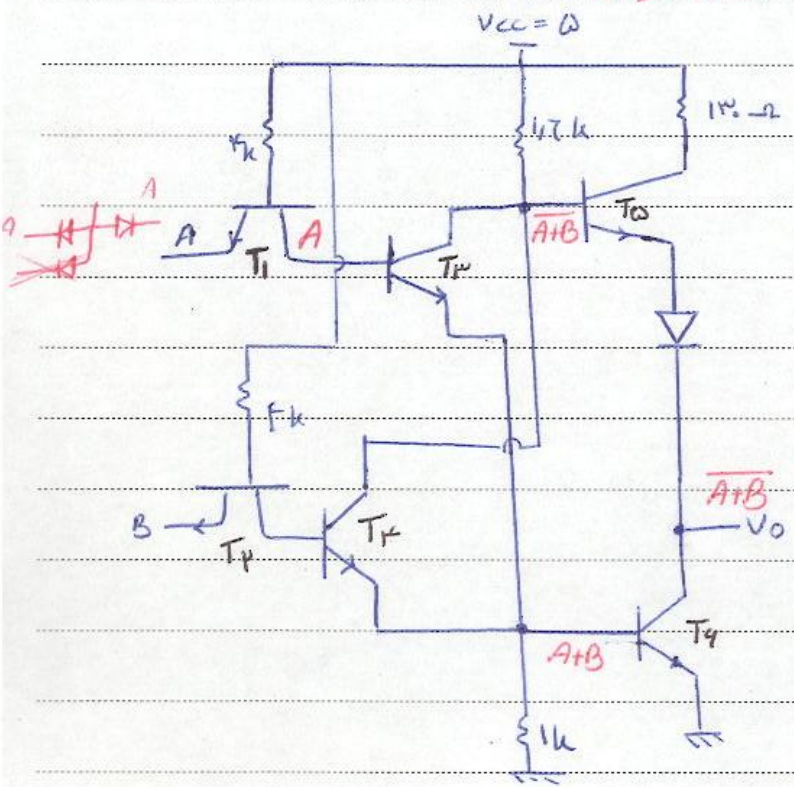 Vcc = ۵
۴k
۱٫۶k
۱۳۰ Ω
A
A
T۱
A
T۳
A+B
T۵
۴k
B
T۲
T۴
A+B
Vo
A+B
T۶
۱k